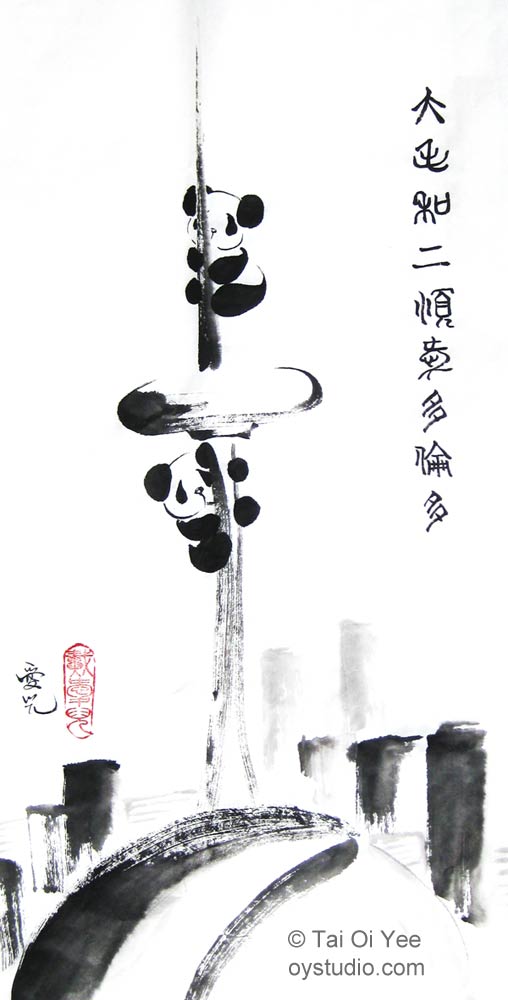 大毛和二順愛多倫多
戴愛兒
愛兒
© Tai Oi Yee
oystudio.com